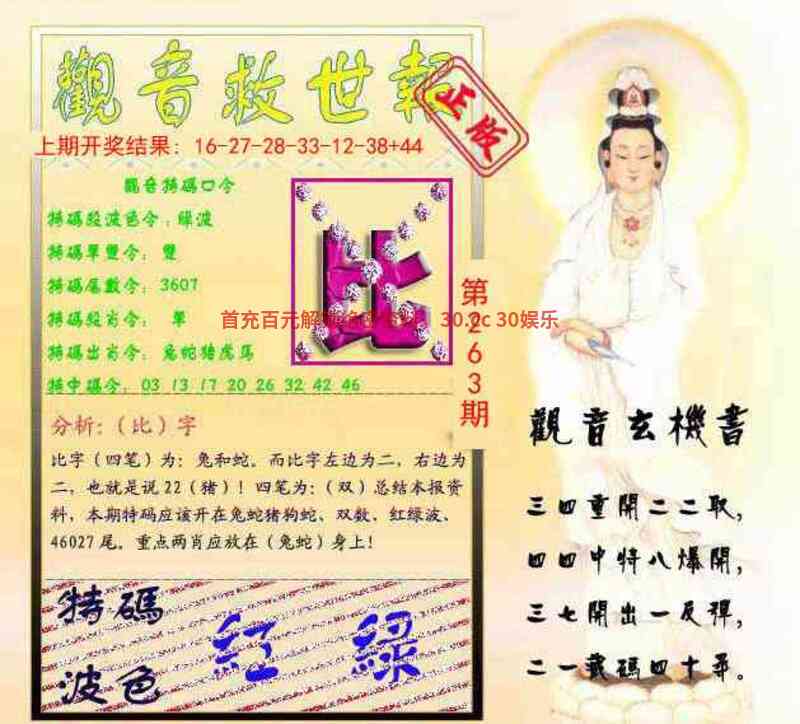 觀音救世報
正版
上期开奖结果：16-27-28-33-12-38+44
觀音特碼口令
特碼段波色令：綠波
特碼單雙令：雙
特碼尾數令：3607
特碼段肖令：單
特碼出肖令：兔蛇猪虎馬
特中碼令：03 13 17 20 26 32 42 46
比
首充百元解
30.cc 30娱乐
第263期
分析：（比）字
比字（四笔）为：兔和蛇。而比字左边为二，右边为
二，也就是说22（猪）！四笔为：（双）总结本报资
料，本期特码应该开在兔蛇猪狗蛇、双数、红绿波、
46027尾。重点两肖应放在（兔蛇）身上！
特碼
波色
紅 綠
觀音玄機書
三四重開二二取，
四四中特八爆開，
三七開出一反彈，
二一藏碼四十尋。